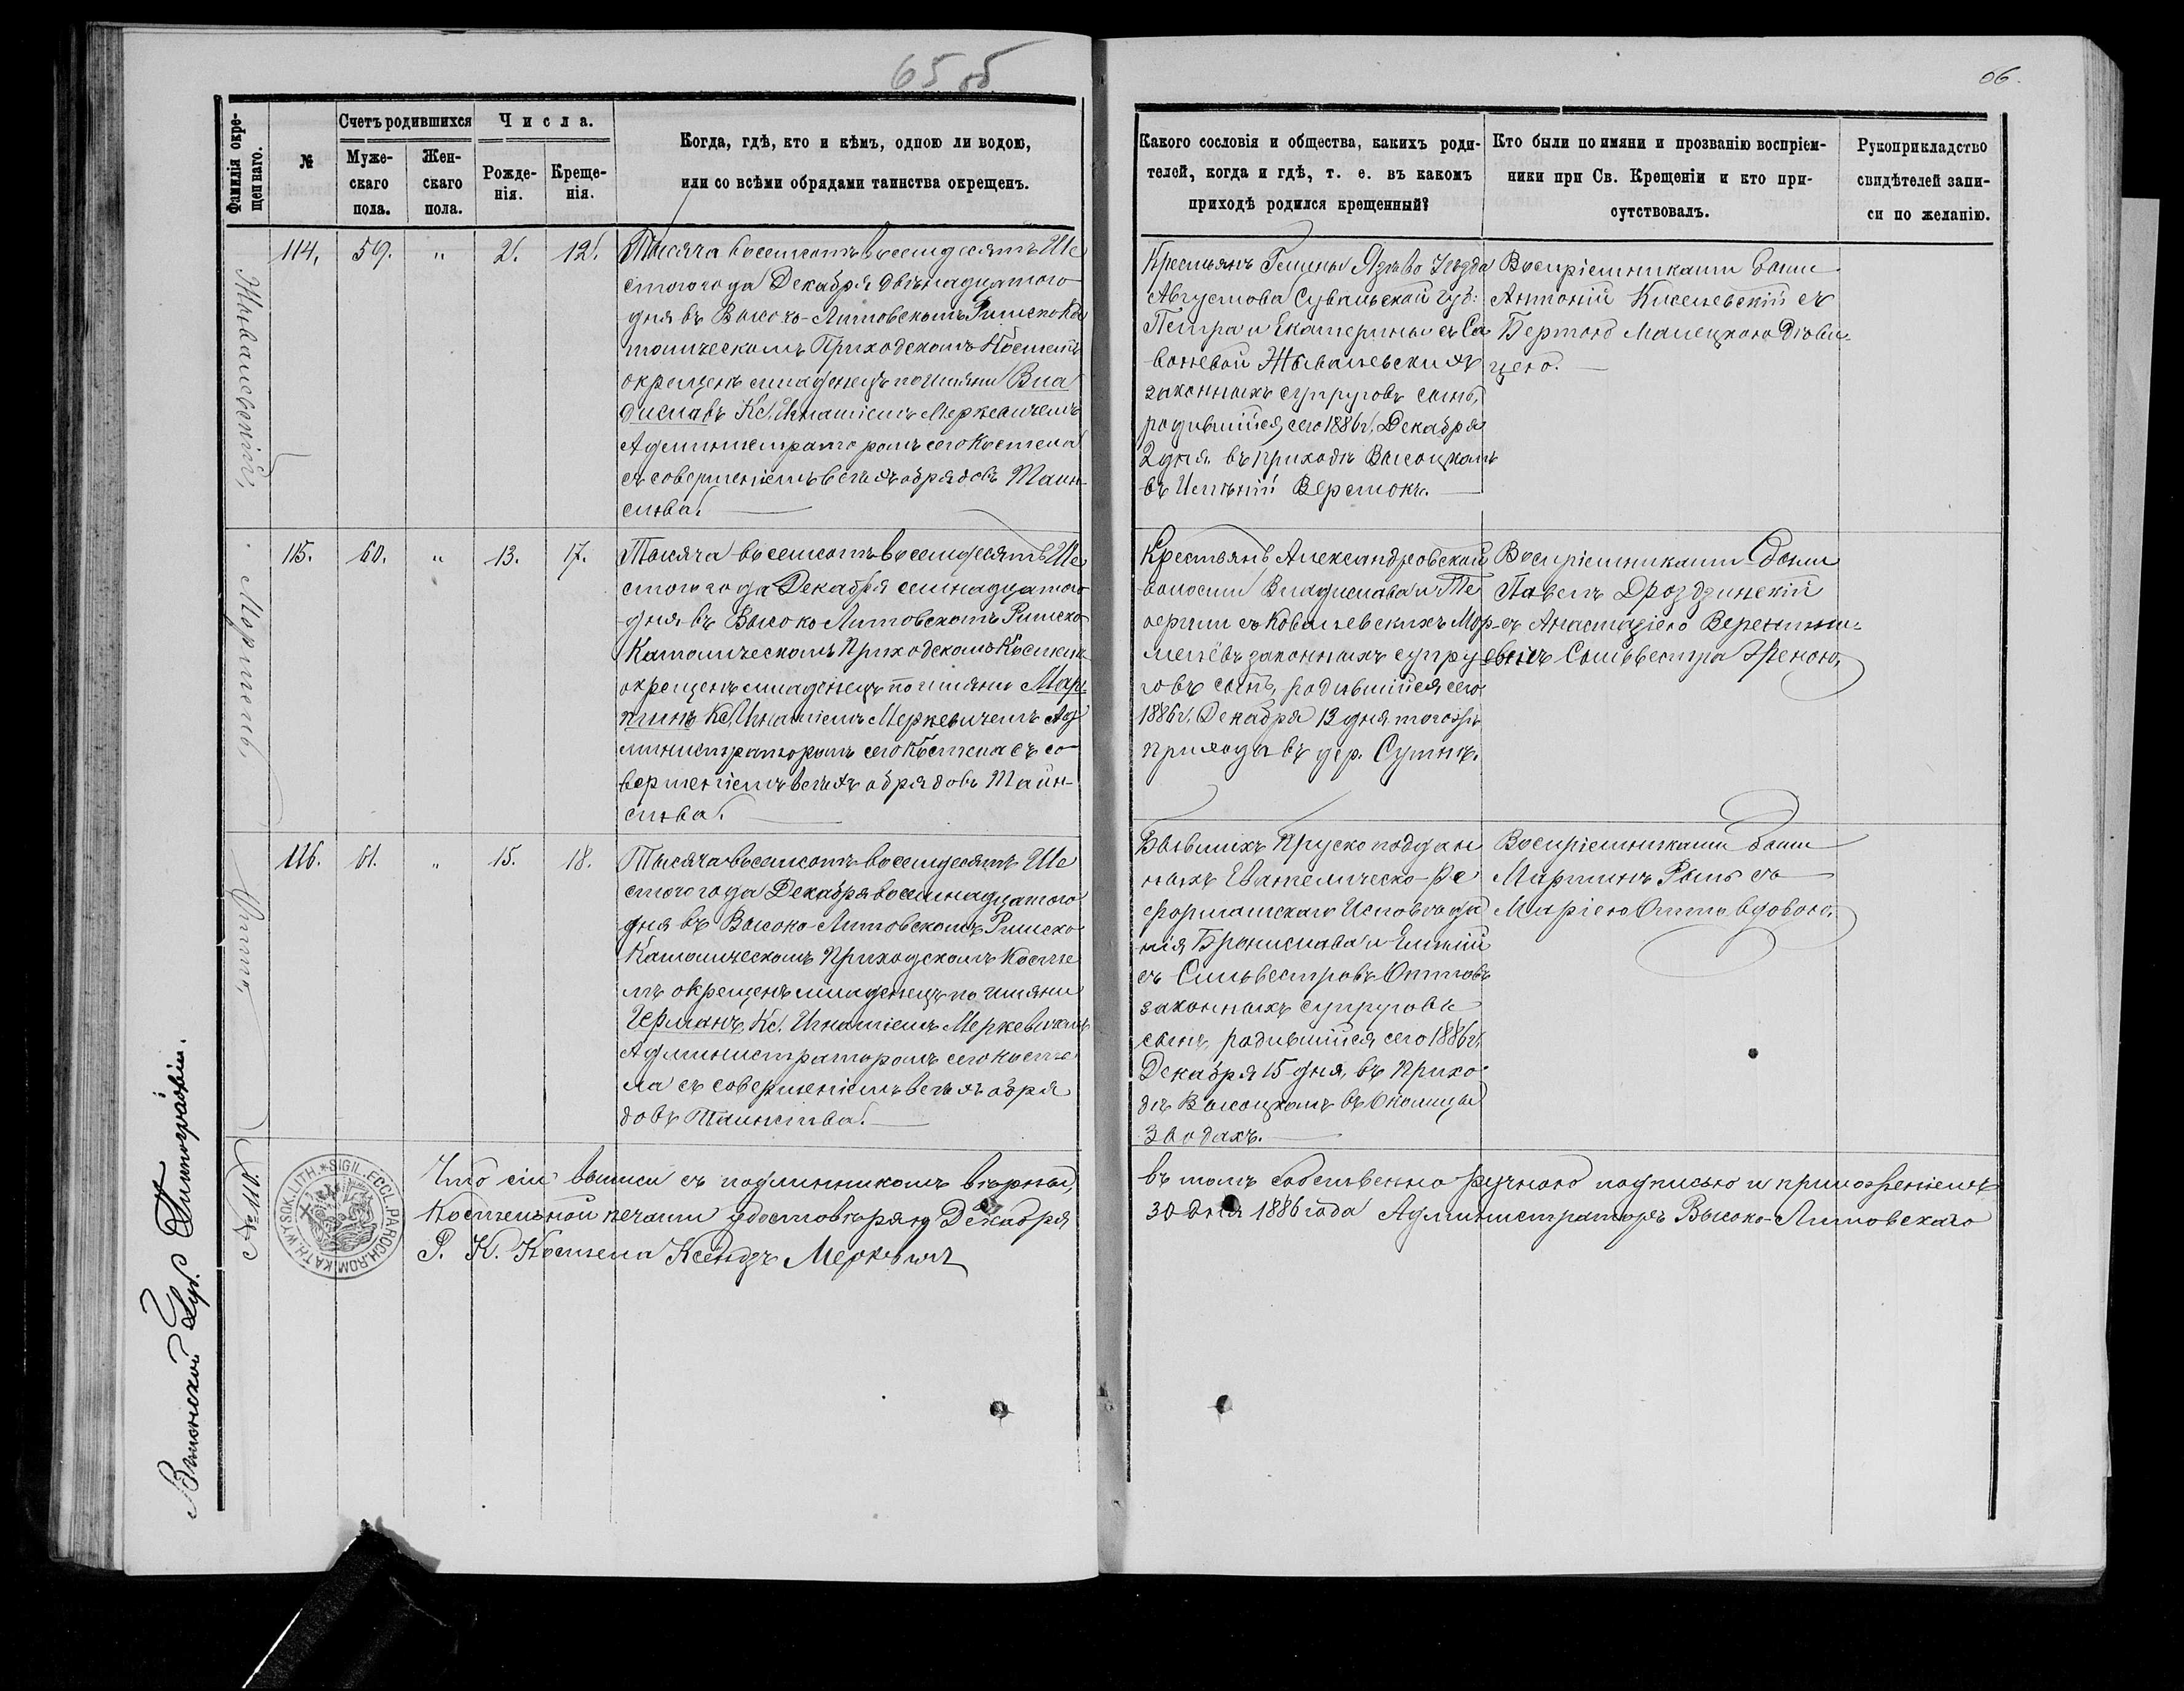 65 об
Фамилія окре-
щеннаго.
№
Счетъ родившихся
Муже-
скаго
пола.
Жен-
скаго
пола.
Числа.
Рожде-
нія.
Креще-
нія.
Когда, гдѣ, кто и кѣмъ, одною ли водою,
или со всѣми обрядами таинства окрещенъ.
Жывалевскій,
114,
59.
"
2.
12.
Тысяча восемсотъ восемдесятъ Ше
стого года Декабря двѣнадцатого
дня въ Высоко-Литовскомъ Римско Ка
толическомъ Приходскомъ Костелѣ
окрещенъ младенецъ по имяни Вла
диславъ Кс. Игнатіемъ Меркевичемъ
Администраторомъ сего Костела
съ совершеніемъ всѣхъ обрядовъ Таин-
ства.
Мортель,
115.
60.
"
13.
17.
Тысяча восемсотъ восемдесятъ Ше
стого года Декабря семнадцатого
дня въ Высоко Литовскомъ Римско
Католическомъ Приходскомъ Костелѣ
окрещенъ младенецъ по имяни Мар-
тинъ Кс. Игнатіемъ Меркевичемъ Ад
министраторомъ сего Костела съ со-
вершеніемъ всѣхъ обрядовъ Таин-
ства.
Оттъ,
116.
61.
"
15.
18.
Тысяча восемсотъ восемдесятъ Ше
стого года Декабря восемнадцатого
дня въ Высоко-Литовскомъ Римско
Католическомъ Приходскомъ Косте
лѣ окрещенъ младенецъ по имяни
Германъ, Кс. Игнатіемъ Меркевичемъ
Администраторомъ сего Косте
ла съ совершеніемъ всѣхъ обря
довъ Таинства.
SIGIL.ECCL.PAROCH.ROM.KATH.WYSOK.LITH.
Что сіи выписи съ подлинникомъ вѣрны,
Костельной печати удостовѣряю Декабря
Р. К. Костела Ксендзъ Меркевич
Виленской Губ. Типографіи.
66.
Какого сословія и общества, какихъ роди-
телей, когда и гдѣ, т. е. въ какомъ
приходѣ родился крещенный?
Кто были по имяни и прозванію воспріем-
ники при Св. Крещеніи и кто при-
сутствовалъ.
Рукоприкладство
свидѣтелей запи-
си по желанію.
Крестьянъ Гмины Язѣво Уѣзда
Августова Сувальской губ:
Петра и Екатерины съ Са
воневой Жывалевскихъ
законныхъ супруговъ сынъ,
родившійся сего 1886 г. Декабря
2 дня въ приходѣ Высоцкомъ
въ Имѣніи Веремокъ.
Воспріемниками были
Антоній Киселевскій съ
Бертою Малецкою Дѣви-
цею.
Крестьянъ Александровской
волости Владислава и Те
оергіи съ Ковалевскихъ Мор-
телёвъ законныхъ супру
говъ сынъ, родившійся сего
1886 г. Декабря 13 дня тогожъ
прихода въ дер. Сутнѣ.
Воспріемниками были
Павелъ Дроздзинскій
съ Анастазіею
Сильвестра Женою,
Бывшихъ Пруско поддан
ныхъ Евангелическо-Ре
форматскаго Исповѣда
нія Бронислава и Емиліи
съ Сильвестровъ Оттовъ
законныхъ супруговъ
сынъ, родившійся сего 1886 г.
Декабря 15 дня, въ Прихо-
дѣ Высоцкомъ въ Околицы
Зводахъ.
Воспріемниками были
Мартинъ Рыль съ
Маріею Оттъ Вдовою.
въ томъ собственно ручною подписью и приложеніемъ
30 дня 1886 года Администраторъ Высоко-Литовскаго